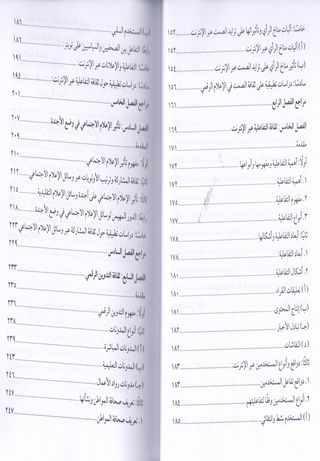 خامسًا: آليات مناخ الرأي وتأثيراتها على تزايد الصمت عبر الإنترنت ١٥٢
(أ) آليات مناخ الرأي عبر الإنترنت ١٥٢
(ب) تأثير مناخ الرأي على تزايد الصمت عبر الإنترنت ١٥٤
سادسًا: دراسات تطبيقية على ثقافة الصمت في الإعلام الرقمي ١٥٦
مراجع الفصل الرابع ١٦١
الفصل الخامس: ثقافة التفاعلية عبر الإنترنت ١٦٩
مقدمة ١٧١
أولًا: أهمية التفاعلية ومفهومها وأنواعها ١٧٢
١. أهمية التفاعلية ١٧٢
٢. مفهوم التفاعلية ١٧٤
٣. أنواع التفاعلية ١٧٧
ثانيًا: أبعاد التفاعلية وأشكالها ١٧٨
١. أبعاد التفاعلية: ١٧٨
٢. أشكال التفاعلية ١٨٠
(أ) تعليقات القراء ١٨٠
(ب) إنتاج المحتوى ١٨١
(ج) تبادل الأخبار ١٨٢
(د) النقاشات ١٨٢
ثالثًا: دوافع وأنواع المستخدمين عبر الإنترنت: ١٨٣
١. دوافع تفاعل المستخدمين ١٨٣
٢. أنواع المستخدمين وفقًا لتفاعليتهم ١٨٤
(أ) المستخدم نشط وانتقائي ١٨٥
(ب) المستخدم السلبي ١٨٦
رابعًا: التفاعل بين الصحفيين والسياسيين على تويتر ١٨٦
خامسًا: التفاعلية والإعلانات عبر الإنترنت ١٩١
سادسًا: دراسات تطبيقية حول ثقافة التفاعلية عبر الإنترنت ١٩٤
مراجع الفصل الخامس ٢٠١
الفصل السادس: تأثير الإعلام الاجتماعي في وضع الأجندة ٢٠٧
مقدمة ٢٠٩
أولًا: مفهوم تأثير الإعلام الاجتماعي ٢١٠
ثانيًا: ثقافة المشاركة وترتيب الأولويات عبر وسائل الإعلام الاجتماعي ٢١٢
ثالثًا: تأثير الإعلام الاجتماعي على أجندة وسائل الإعلام التقليدية ٢١٥
رابعًا: الدور المهيمن لوسائل الإعلام الاجتماعي في وضع الأجندة ٢١٨
خامسًا: دراسات تطبيقية حول ثقافة المشاركة عبر وسائل الإعلام الاجتماعي ٢٢٣
مراجع الفصل السادس ٢٢٩
الفصل السابع: ثقافة التدوين الرقمي ٢٣٣
مقدمة ٢٣٥
أولًا: مفهوم التدوين الرقمي ٢٣٦
ثانيًا: أنواع المدونات ٢٣٨
(أ) المدونات المباشرة ٢٣٩
(ب) المدونات التعليمية ٢٤٣
(جـ) مدونات رواد الأعمال ٢٤٦
ثالثًا: تعريف صحافة المواطن ونشأتها ٢٤٧
١. تعريف صحافة المواطن ٢٤٧